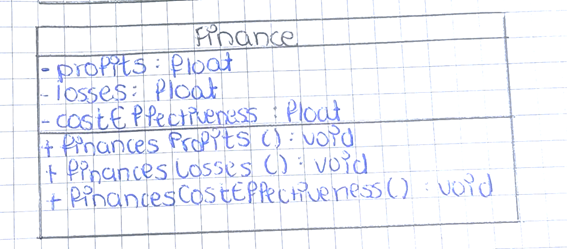 Finance
- profits : float
- losses : float
- costEffectiveness : float
+ finances Profits () : void
+ finances Losses () : void
+ financesCostEffectiveness() : void